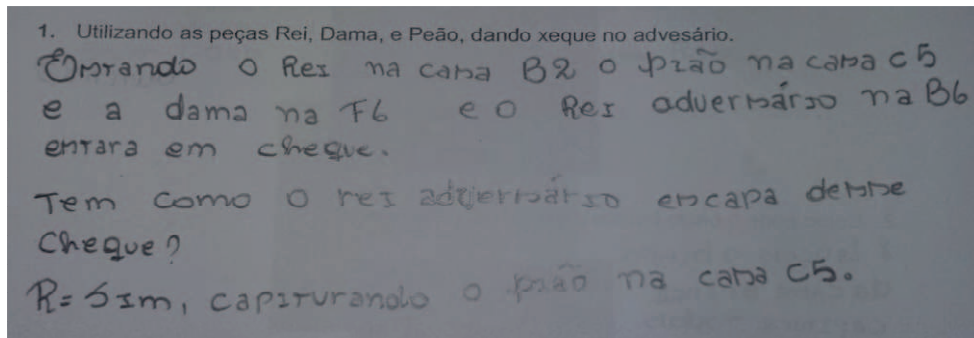 1. Utilizando as peças Rei, Dama, e Peão, dando xeque no advesário.
Estando o Rei na casa B2 o pião na casa C5
e a dama na F6 e o Rei adversário na B6
entara em cheque.
Tem como o rei adversário escapa desse
cheque?
R= Sim, capiturando o pião na casa C5.